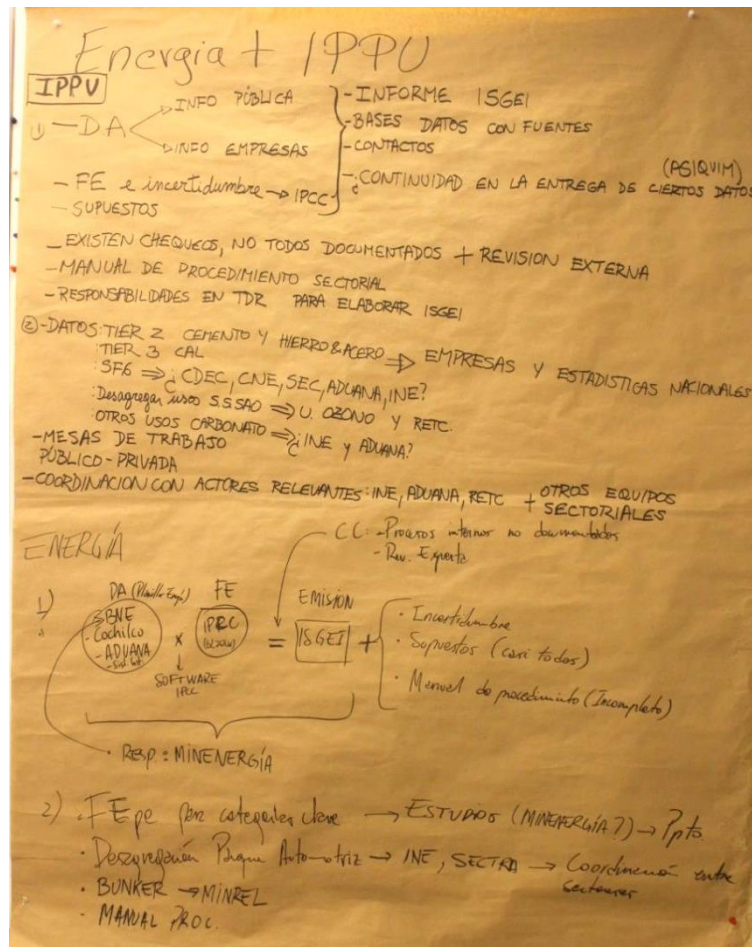 Energía + IPPU
IPPU
① - DA
INFO PÚBLICA
INFO EMPRESAS
- FE e incertidumbre → IPCC
- SUPUESTOS
- INFORME ISGEI
- BASES DATOS CON FUENTES
- CONTACTOS
- ¿CONTINUIDAD EN LA ENTREGA DE CIERTOS DATOS
(ASIQUIM)
- EXISTEN CHEQUEOS, NO TODOS DOCUMENTADOS + REVISION EXTERNA
- MANUAL DE PROCEDIMIENTO SECTORIAL
- RESPONSABILIDADES EN TDR PARA ELABORAR ISGEI
② - DATOS: TIER 2 CEMENTO Y HIERRO & ACERO ⇒ EMPRESAS Y ESTADISTICAS NACIONALES
: TIER 3 CAL
: SF6 ⇒ ¿CDEC, CNE, SEC, ADUANA, INE?
: Desagregar usos S.SSAO ⇒ U. OZONO Y RETC.
: OTROS USOS CARBONATO ⇒ ¿INE y ADUANA?
- MESAS DE TRABAJO
PÚBLICO - PRIVADA
- COORDINACION CON ACTORES RELEVANTES: INE, ADUANA, RETC + OTROS EQUIPOS
SECTORIALES
ENERGÍA
CC: - Procesos internos no documentados
- Rev. Experta
1)
DA (Planilla
FE
EMISIÓN
BNE
- Cochilco
- ADUANA
x
IPCC
= ISGEI +
↓
SOFTWARE
IPCC
· Incertidumbre
· Supuestos (casi todos)
· Manual de procedimiento (Incompleto)
· RESP.: MINENERGÍA
2) · FEpe para categorías clave → ESTUDIOS (MINENERGÍA?) → Ppto.
· Desagregación Parque Automotriz → INE, SECTRA → Coordinación entre
sectores
· BUNKER → MINREL
· MANUAL PROC.